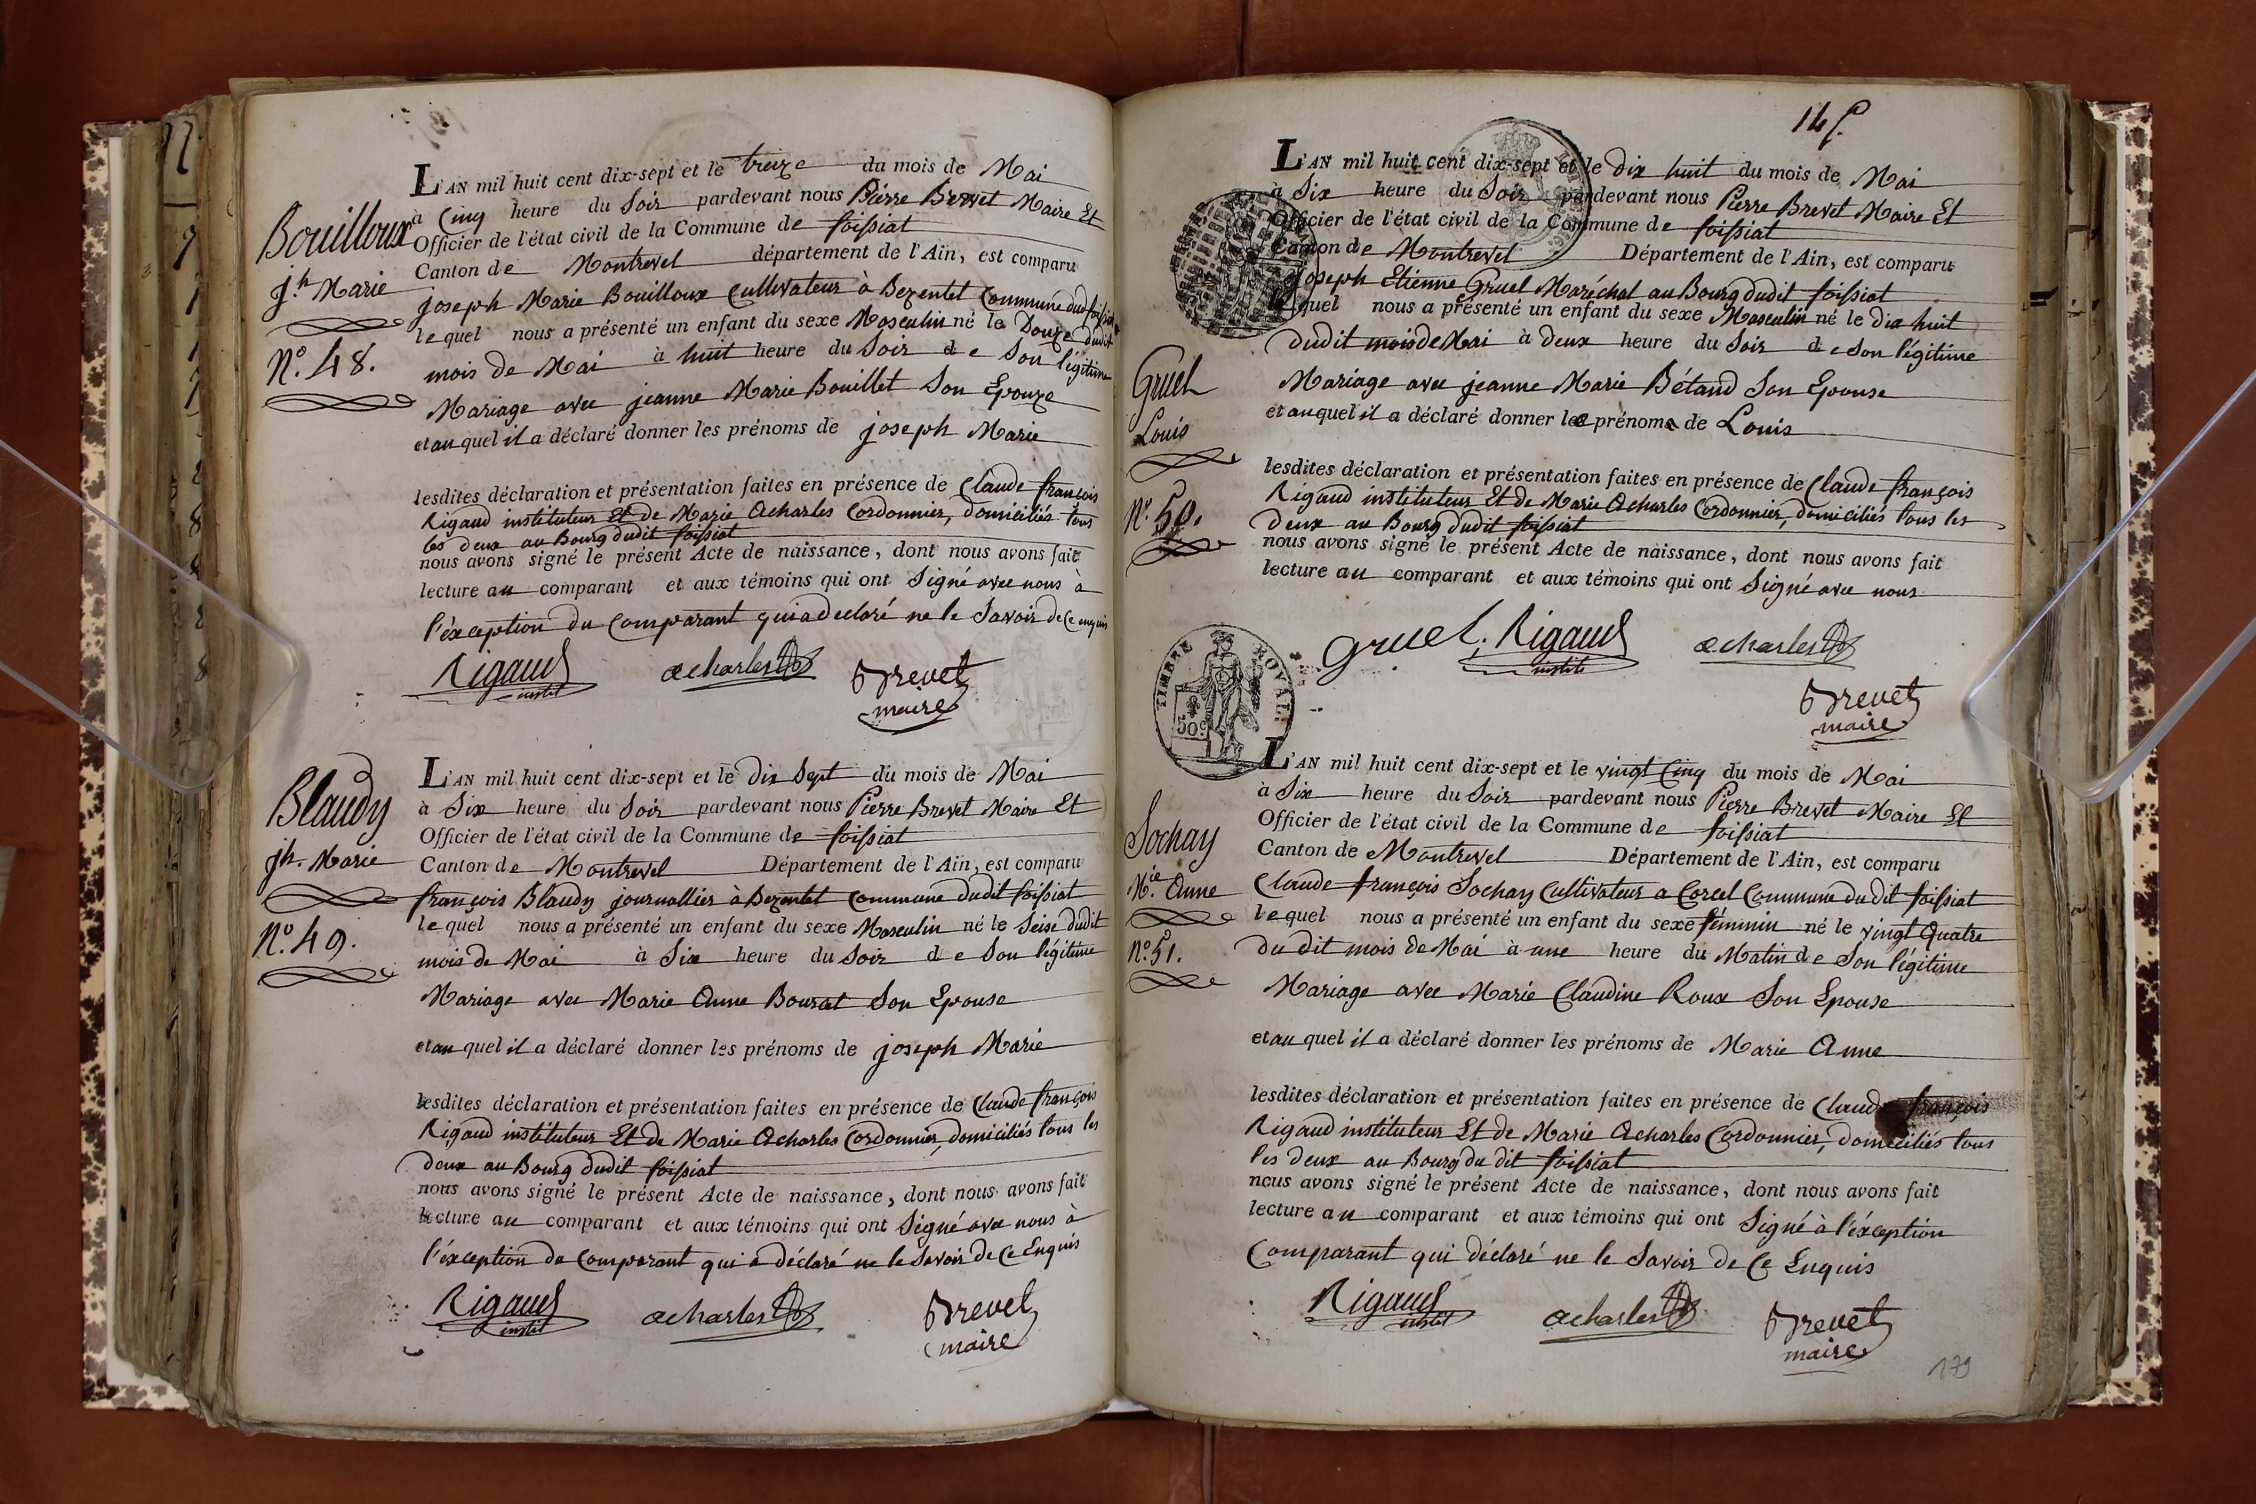 Bouilloux
jh Marie
No. 48.
L'AN mil huit cent dix-sept et le treize du mois de Mai
à Cinq heure du Soir pardevant nous Pierre Brevet Maire Et
Officier de l'état civil de la Commune de foissiat
Canton de Montrevel département de l'Ain, est comparu
joseph Marie Bouilloux Cultivateur à Dezentet Commune dud. foissiat
lequel nous a présenté un enfant du sexe Masculin né le Douze dudit
mois de Mai à huit heure du Soir de Son légitime
Mariage avec jeanne Marie Bouillet Son Epouze
et auquel il a déclaré donner les prénoms de joseph Marie
lesdites déclaration et présentation faites en présence de Claude françois
Rigaud instituteur Et de Marie Acharles Cordonnier, domiciliés tous
les deux au Bourg dudit foissiat
nous avons signé le présent Acte de naissance, dont nous avons fait
lecture au comparant et aux témoins qui ont Signé avec nous à
l'éxception du Comparant qui a declaré ne le Savoir de Ce enquis
Rigaud instit
acharles
Brevet
maire
Blaudy
jh. Marie
No. 49.
L'AN mil huit cent dix-sept et le dix Sept du mois de Mai
à Six heure du Soir pardevant nous Pierre Brevet Maire Et
Officier de l'état civil de la Commune de foissiat
Canton de Montrevel Département de l'Ain, est comparu
françois Blaudy journallier à Dezentet Commune dudit foissiat
lequel nous a présenté un enfant du sexe Masculin né le Seise dudit
mois de Mai à Six heure du Soir de Son légitime
Mariage avec Marie Anne Boursat Son Epouse
et au quel il a déclaré donner les prénoms de joseph Marie
lesdites déclaration et présentation faites en présence de Claude françois
Rigaud instituteur Et de Marie Acharles Cordonnier, domiciliés tous les
deux au Bourg dudit foissiat
nous avons signé le présent Acte de naissance, dont nous avons fait
lecture au comparant et aux témoins qui ont Signé avec nous à
l'éxception de Comparant qui a déclaré ne le Savoir de Ce Enquis
Rigaud instit
acharles
Brevet
maire
Gruel
Louis
No. 50.
L'AN mil huit cent dix-sept et le dix huit du mois de Mai
à Six heure du Soir pardevant nous Pierre Brevet Maire Et
Officier de l'état civil de la Commune de foissiat
Canton de Montrevel Département de l'Ain, est comparu
Joseph Etienne Gruel Maréchal au Bourg dudit foissiat
lequel nous a présenté un enfant du sexe Masculin né le dix huit
dudit mois de Mai à deux heure du Soir de Son légitime
Mariage avec jeanne Marie Bétand Son Epouse
et auquel il a déclaré donner le prénom de Louis
lesdites déclaration et présentation faites en présence de Claude françois
Rigaud instituteur Et de Marie Acharles Cordonnier, domiciliés tous les
deux au Bourg dudit foissiat
nous avons signé le présent Acte de naissance, dont nous avons fait
lecture au comparant et aux témoins qui ont Signé avec nous
gruel. Rigaud instit
acharles
Brevet
maire
TIMBRE ROYAL.
50c
Sochay
Mie Anne
No. 51.
L'AN mil huit cent dix-sept et le vingt Cinq du mois de Mai
à Six heure du Soir pardevant nous Pierre Brevet Maire Et
Officier de l'état civil de la Commune de foissiat
Canton de Montrevel Département de l'Ain, est comparu
Claude françois Sochay Cultivateur a Corcel Commune du dit foissiat
lequel nous a présenté un enfant du sexe féminin né le vingt Quatre
du dit mois de Mai à une heure du Matin de Son légitime
Mariage avec Marie Claudine Roux Son Epouse
et au quel il a déclaré donner les prénoms de Marie Anne
lesdites déclaration et présentation faites en présence de Claude françois
Rigaud instituteur Et de Marie Acharles Cordonnier, domiciliés tous
les deux au Bourg du dit foissiat
nous avons signé le présent Acte de naissance, dont nous avons fait
lecture au comparant et aux témoins qui ont Signé à l'éxception
Comparant qui déclaré ne le Savoir de Ce Enquis
Rigaud instit
acharles
Brevet
maire
179